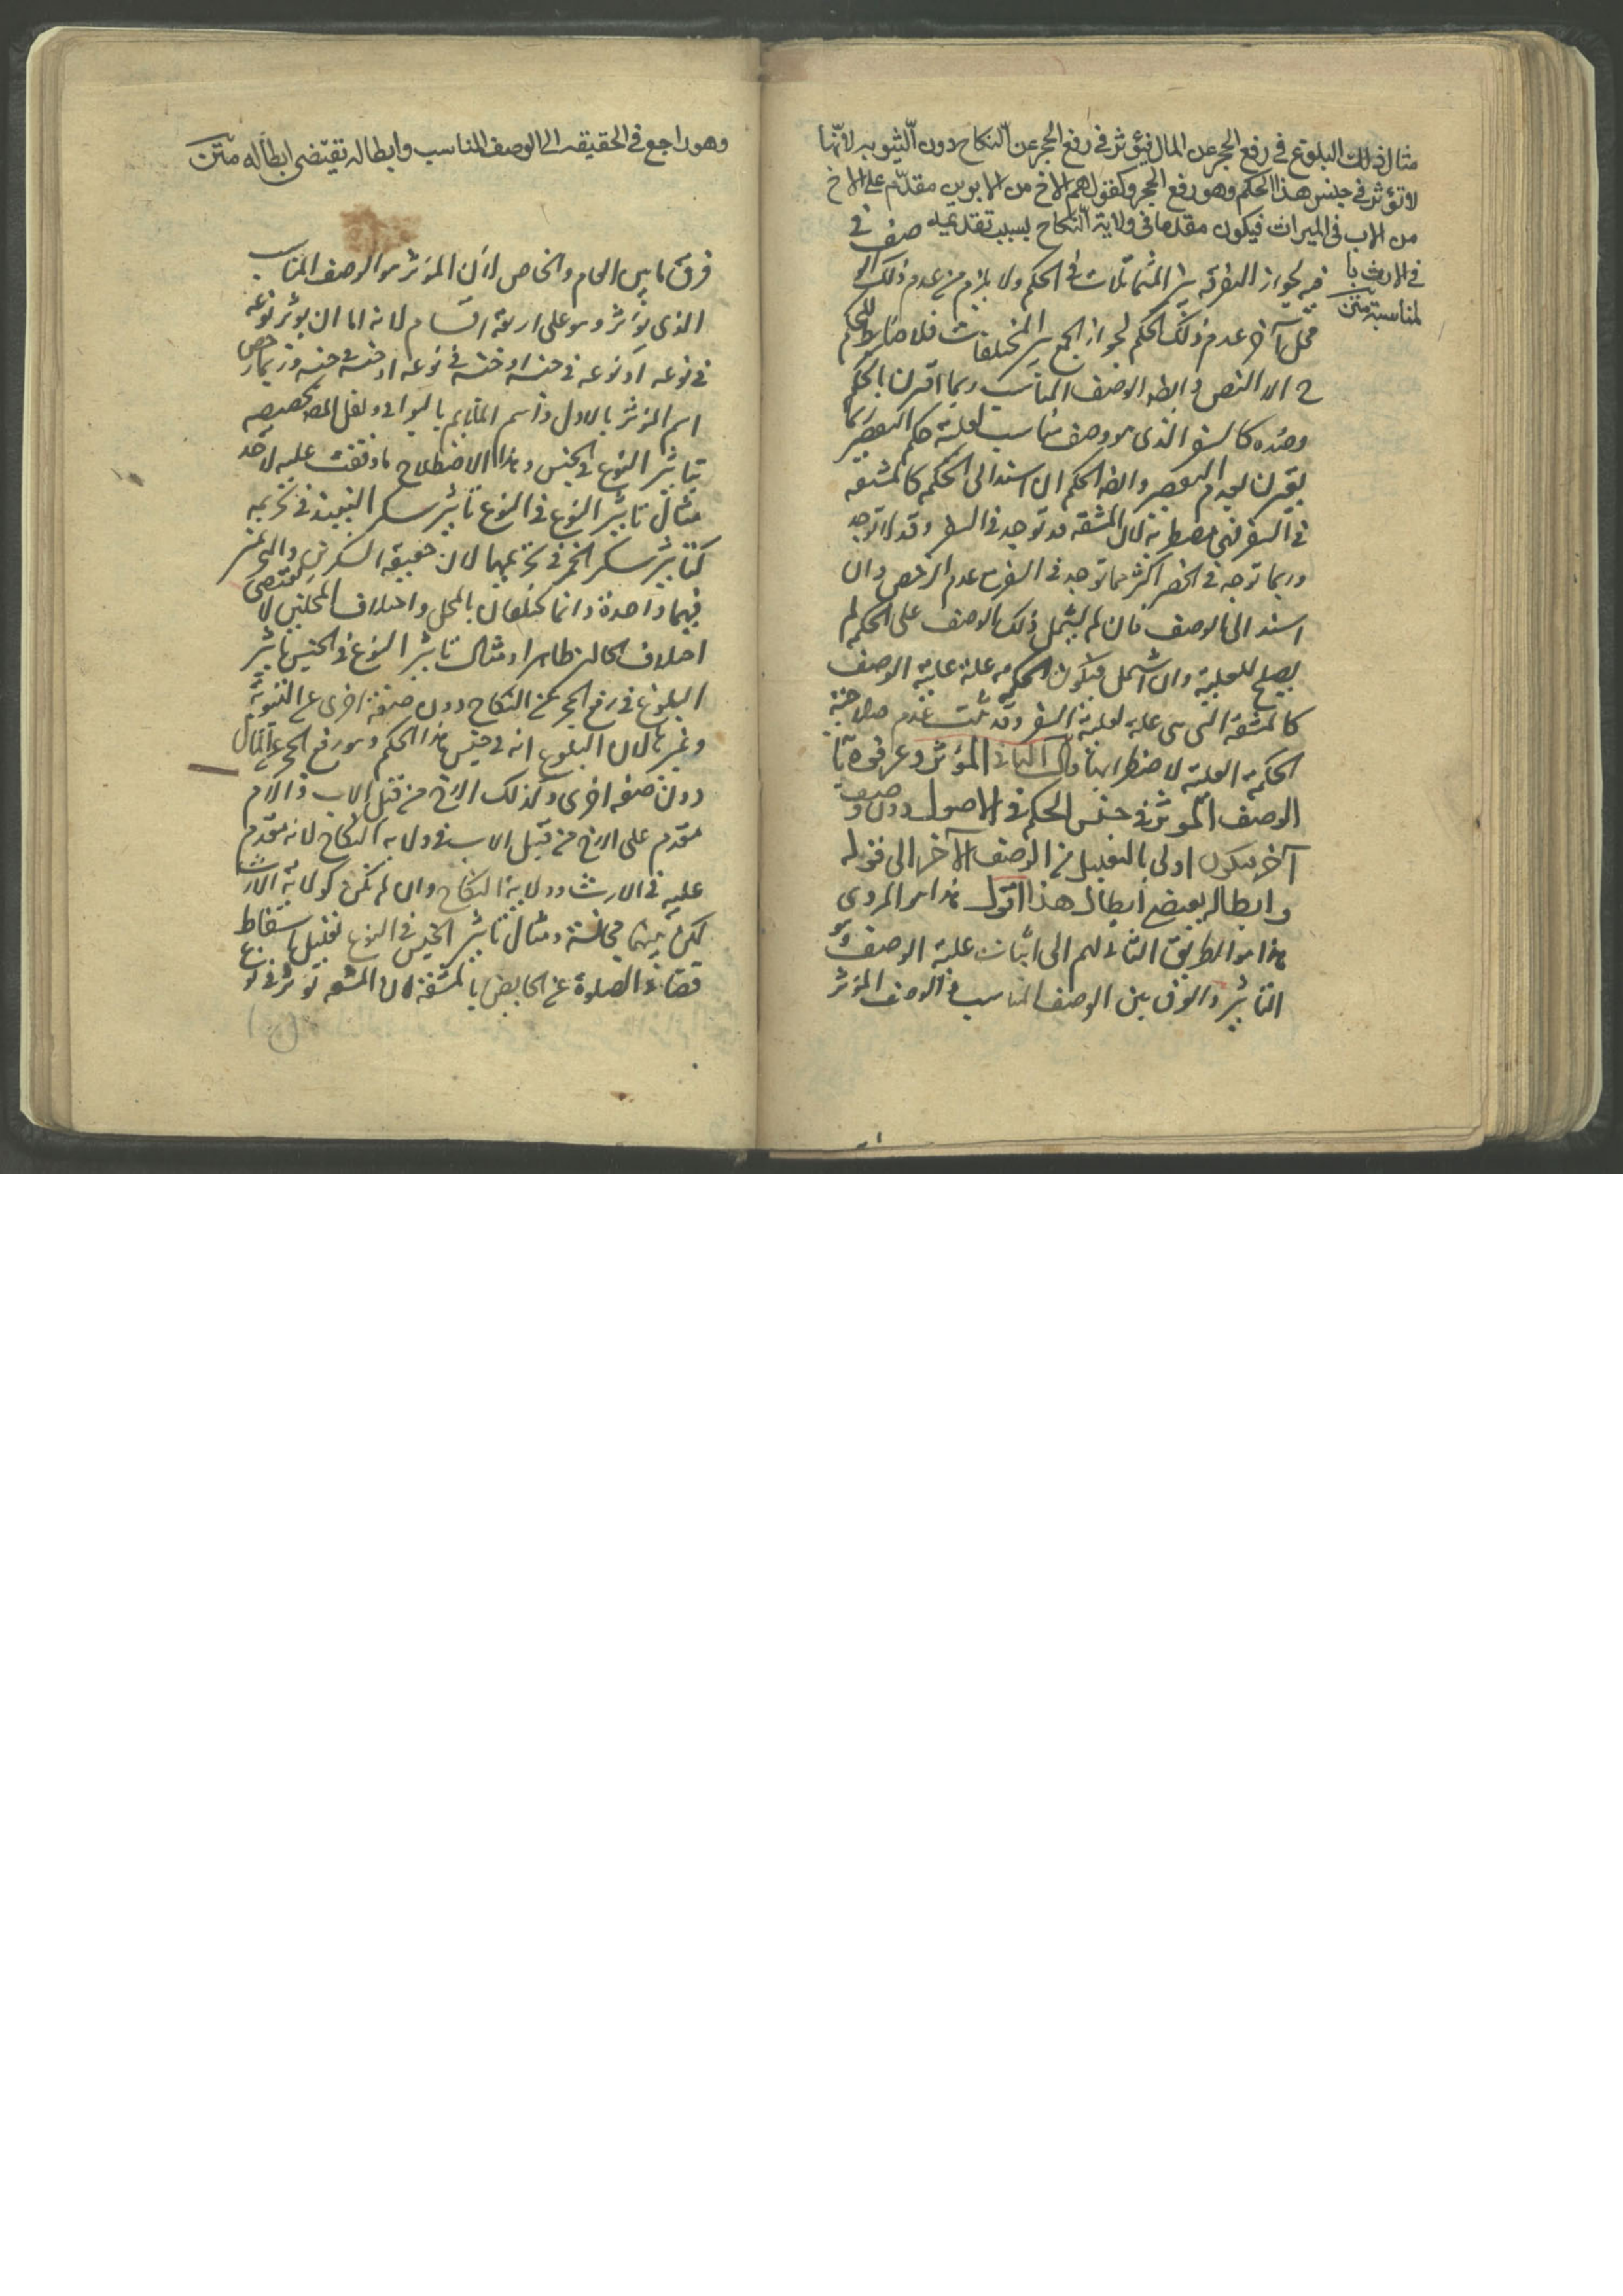 مثال ذلك البلوغ في رفع الحجر عن المال فيؤثر في رفع الحجر عن النكاح دون الثيوبه لانّها
لا تؤثر في جنس هذا الحكم وهو رفع الحجر وكقولهم الاخ من الابوين مقدّم على الاخ
من الاب في الميراث فيكون مقدما في ولاية النكاح بسبب تقديمه
في الارث با
لمناسبة متن
فيه لجواز التفرقه بين المتماثلات في الحكم ولا يلزم من عدم ذلك
محل آخر عدم ذلك الحكم لجواز الجمع بين المختلفات فلا ضابط للحكم
الا النص وايضا الوصف المناسب ربما اقترن بالحكم
وضده كالسفر الذي هو وصف مناسب لعلية حكم القصر
يقترن لعدم القصر وايضا الحكم ان استند الى الحكم كالمشقه
في السفر فهى مضطربة لان المشقه قد توجد في السفر وقد لا توجد
وربما توجد في الحضر اكثر مما توجد في السفر مع عدم الرخص وان
استند الى الوصف فان لم يشتمل ذلك الوصف على الحكم لم
يصلح للعلية وان اشتمل فيكون الحكمه علة علية الوصف
كالمشقة التي هي علة لعلية السفر وقد ثبت عدم صلاحية
الحكمة العلية لاضطرابها قال الثاني المؤثر وعرفوه بانّه
الوصف المؤثر في جنس الحكم في الاصول دون وصف
آخر فيكون اولى بالتعليل من الوصف الآخر الى قوله
وابطاله يقتضي ابطال هذا اقول هذا هو المروى
هذا هو الطريق الثاني لهم الى اثبات علية الوصف وهو
التاثير والفرق بين الوصف المناسب والوصف المؤثر
وهو راجع في الحقيقه الى الوصف المناسب وابطاله يقتضى ابطاله متن
فرق ما بين العام والخاص لان المؤثر هو الوصف المناسب
الذي يؤثر وهو على اربعة اقسام لانه اما ان يؤثر نوعه
في نوعه او نوعه في جنسه او جنسه في نوعه او جنسه في جنسه وربما خص
اسم المؤثر بالاول واسم الملايم بالبواقي ونقل المص تخصيصه
بتاثير النوع في الجنس وهذا الاصطلاح ما وقفت عليه لاحد
مثال تاثير النوع في النوع تاثير سكر النبيذ في تحريمه
كتاثير سكر الخمر في تحريمها لان حقيقة السكرين والتحريمين
فيهما واحدة وانما يختلفان بالمحل واختلاف المحلين لا يقتضى
اختلاف الحالين ظاهرا ومثال تاثير النوع في الجنس تاثير
البلوغ في رفع الحجر عن النكاح دون صفة اخرى عن الثيوبة
وغيرها لان البلوغ اثر في جنس هذا الحكم وهو رفع الحجر عن المال
دون صفه اخرى وكذلك الاخ من قبل الاب والام
مقدم على الاخ من قبل الاب في ولاية النكاح لانه مقدم
عليه في الارث وولاية النكاح وان لم تكن كولاية الارث
لكن بينهما مجانسة ومثال تاثير الجنس في النوع تعليل اسقاط
قضاء الصلوة عن الحايض بالمشقة لان المشقه تؤثر في نوع